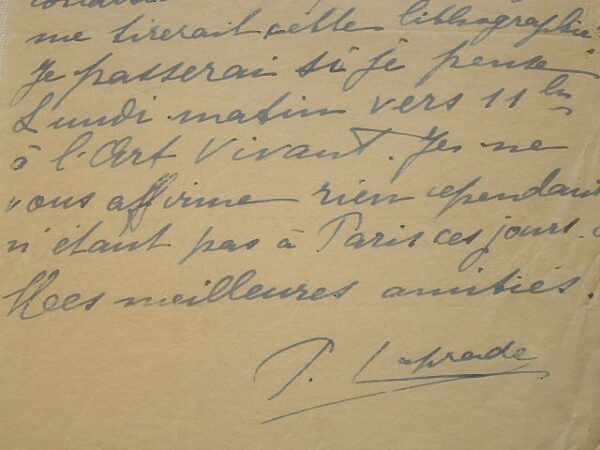 me tirerait cette lithographie
Je passerai si je peux
Lundi matin vers 11 hs
à l'Art Vivant. Je ne
vous affirme rien cependant
n'étant pas à Paris ces jours.
Mes meilleures amitiés.
P. Laprade